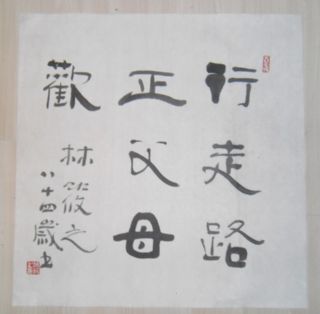 行走路
正父母
歡
林筱之
八十四歲书